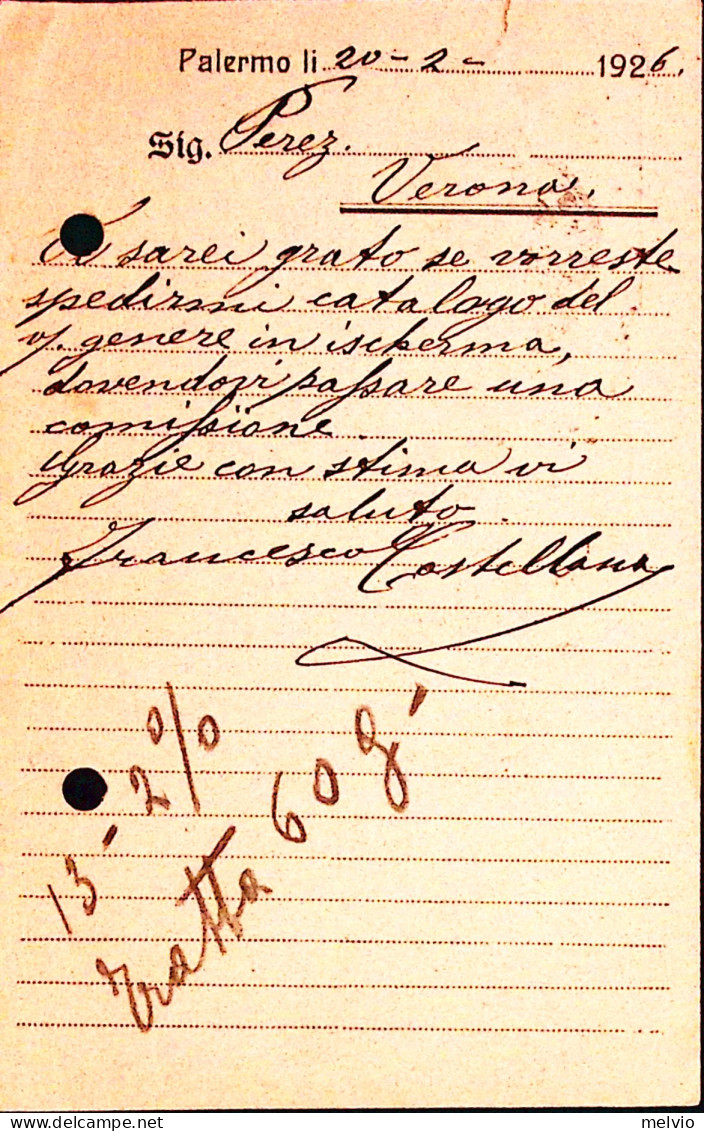 Palermo li 20-2- 1926.
Sig. Perez.
Verona.
Vi sarei grato se vorreste
spedirmi catalogo del
v/. genere in ischerma,
dovendovi passare una
comissione.
Grazie con stima vi
saluto.
Francesco Castellana
13' 2%
tratta 60 g'
melvio